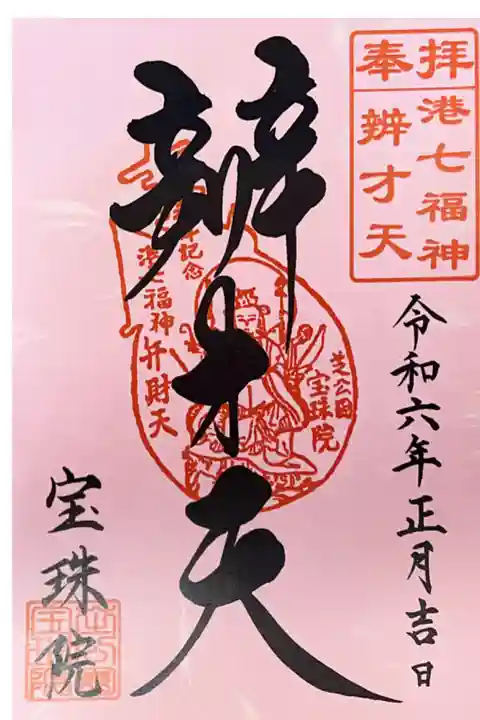 奉拝
港七福神
辨才天
令和六年正月吉日
辨才天
参拝記念
港七福神弁財天
芝公園
宝珠院
宝珠院